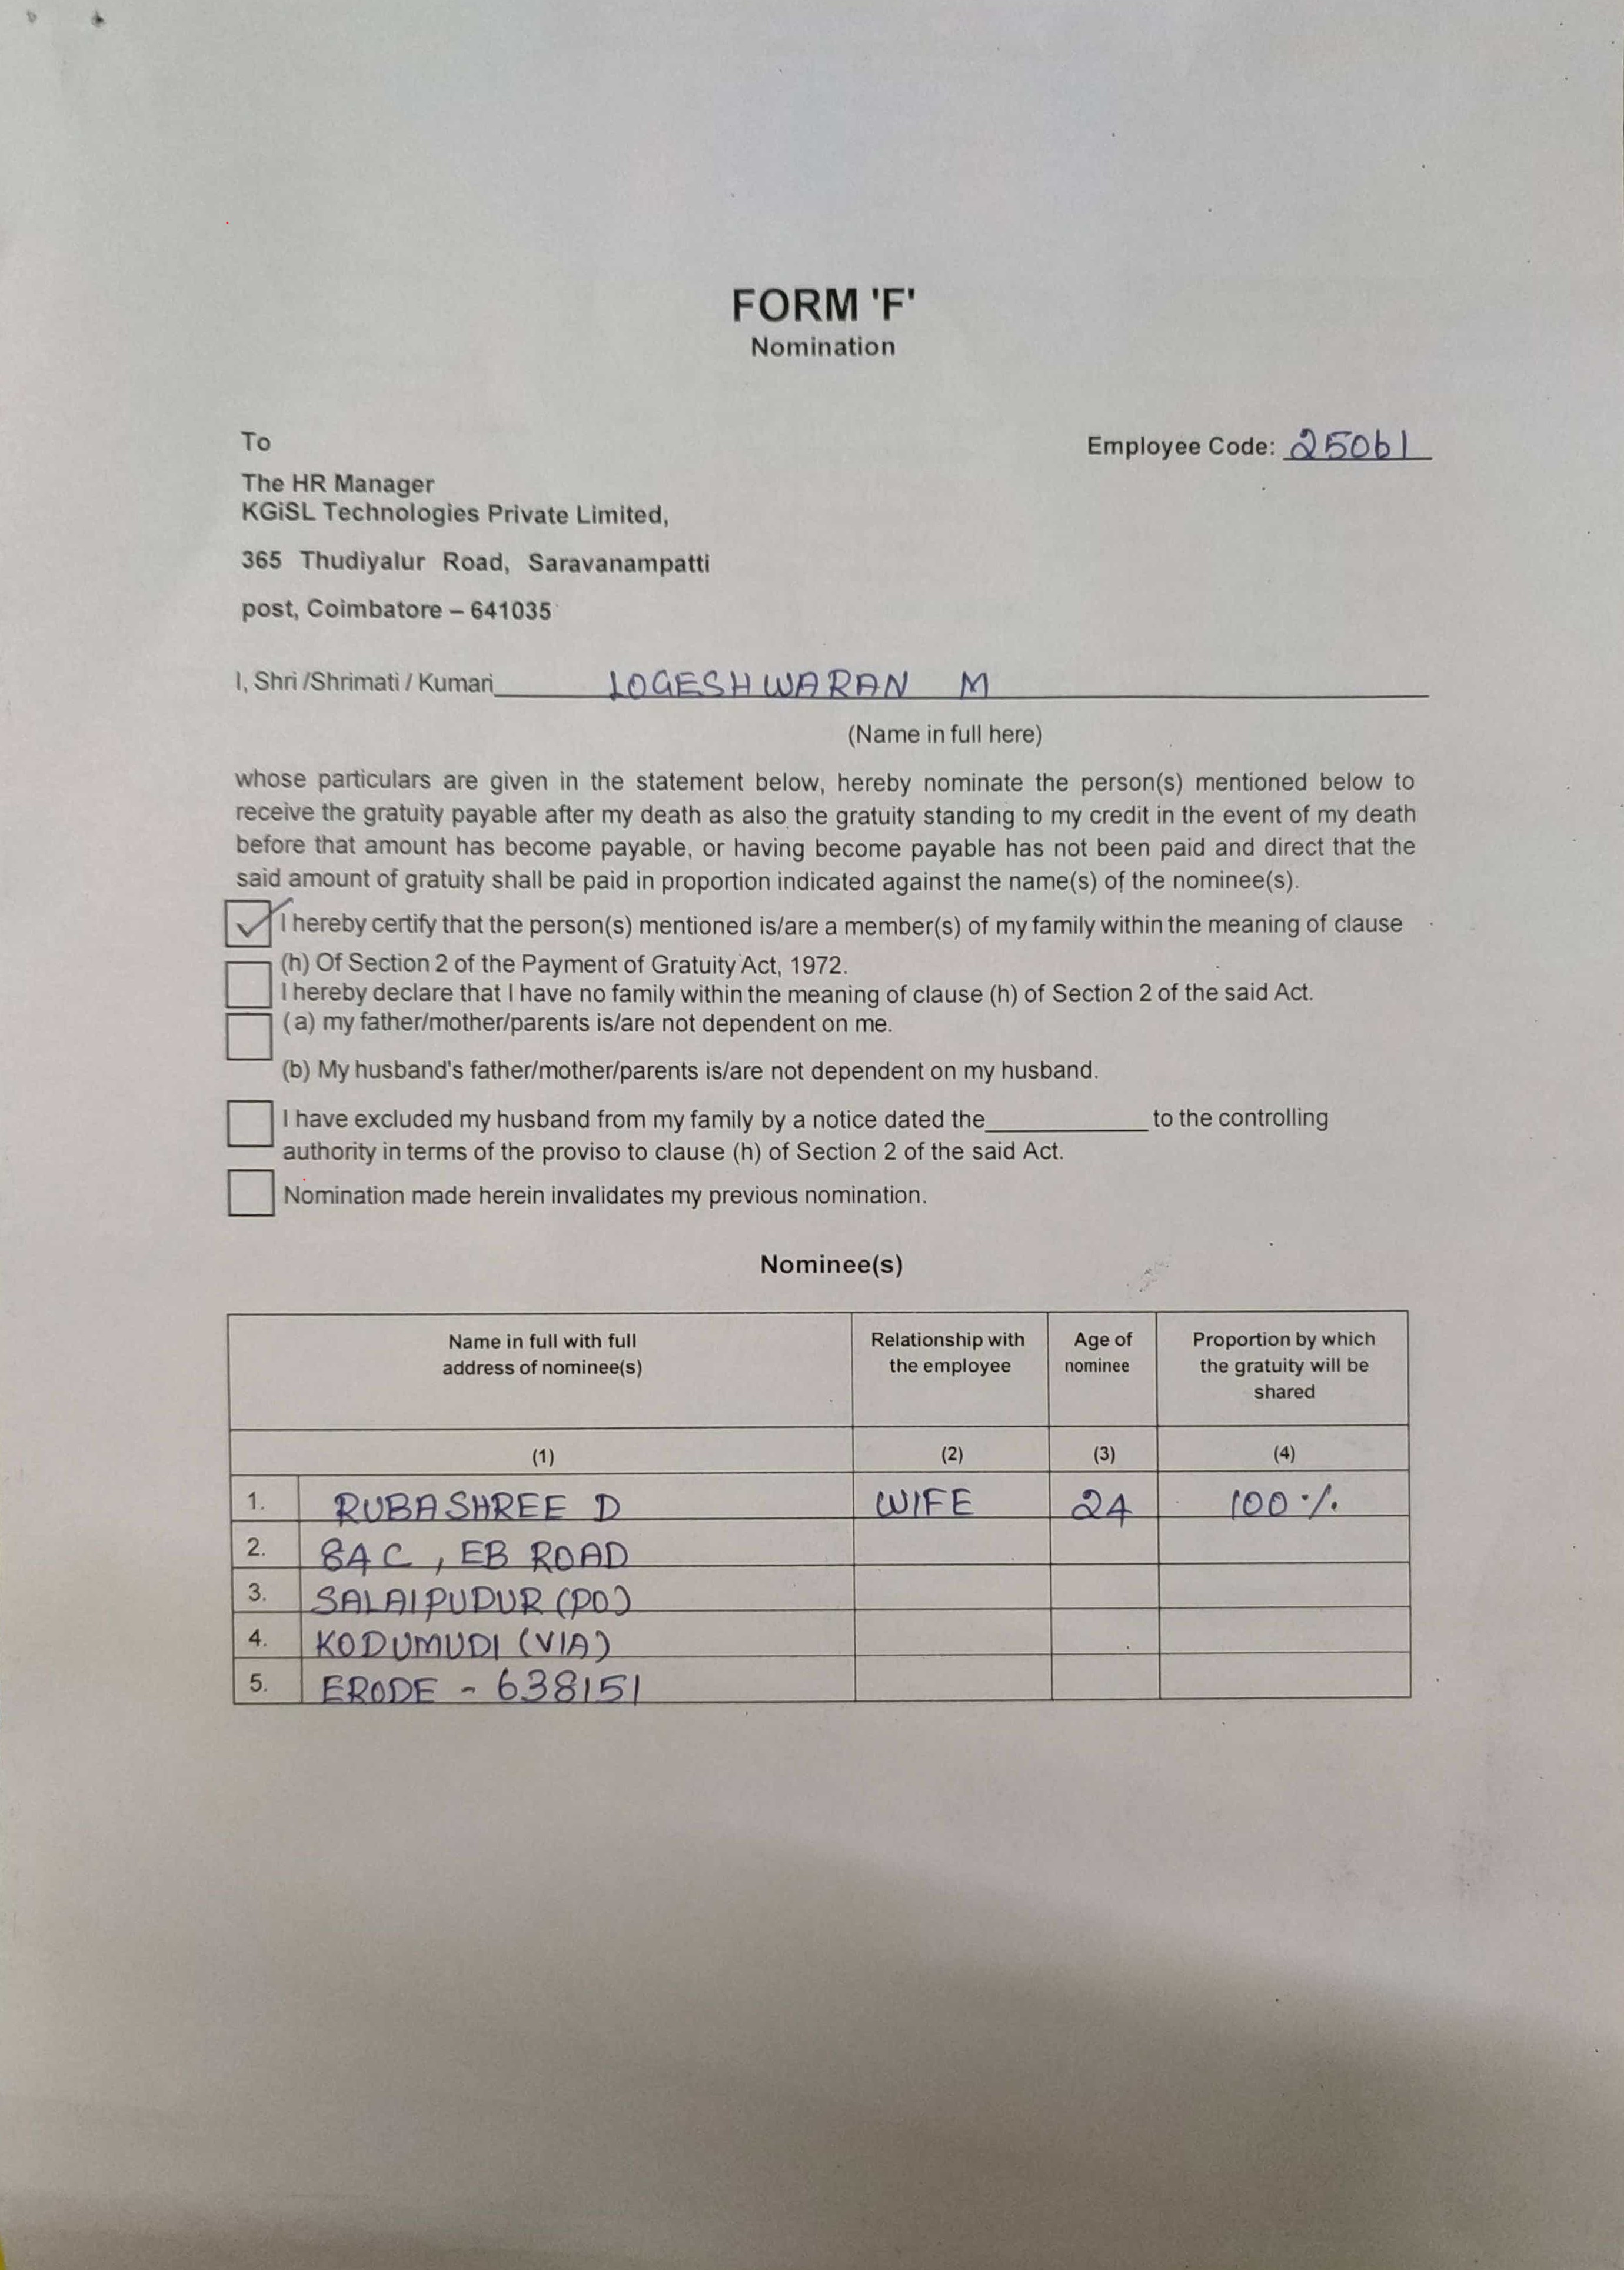 FORM 'F'
Nomination
To
Employee Code: 25061
The HR Manager
KGiSL Technologies Private Limited,
365 Thudiyalur Road, Saravanampatti
post, Coimbatore – 641035
I, Shri /Shrimati / Kumari LOGESHWARAN M
(Name in full here)
whose particulars are given in the statement below, hereby nominate the person(s) mentioned below to
receive the gratuity payable after my death as also the gratuity standing to my credit in the event of my death
before that amount has become payable, or having become payable has not been paid and direct that the
said amount of gratuity shall be paid in proportion indicated against the name(s) of the nominee(s).
I hereby certify that the person(s) mentioned is/are a member(s) of my family within the meaning of clause
(h) Of Section 2 of the Payment of Gratuity Act, 1972.
I hereby declare that I have no family within the meaning of clause (h) of Section 2 of the said Act.
(a) my father/mother/parents is/are not dependent on me.
(b) My husband's father/mother/parents is/are not dependent on my husband.
I have excluded my husband from my family by a notice dated the____________ to the controlling
authority in terms of the proviso to clause (h) of Section 2 of the said Act.
Nomination made herein invalidates my previous nomination.
Nominee(s)
Name in full with full address of nominee(s) Relationship with the employee Age of nominee Proportion by which the gratuity will be shared
(1) (2) (3) (4)
1. RUBASHREE D WIFE 24 100 %
2. 84C, EB ROAD
3. SALAIPUDUR (PO)
4. KODUMUDI (VIA)
5. ERODE - 638151